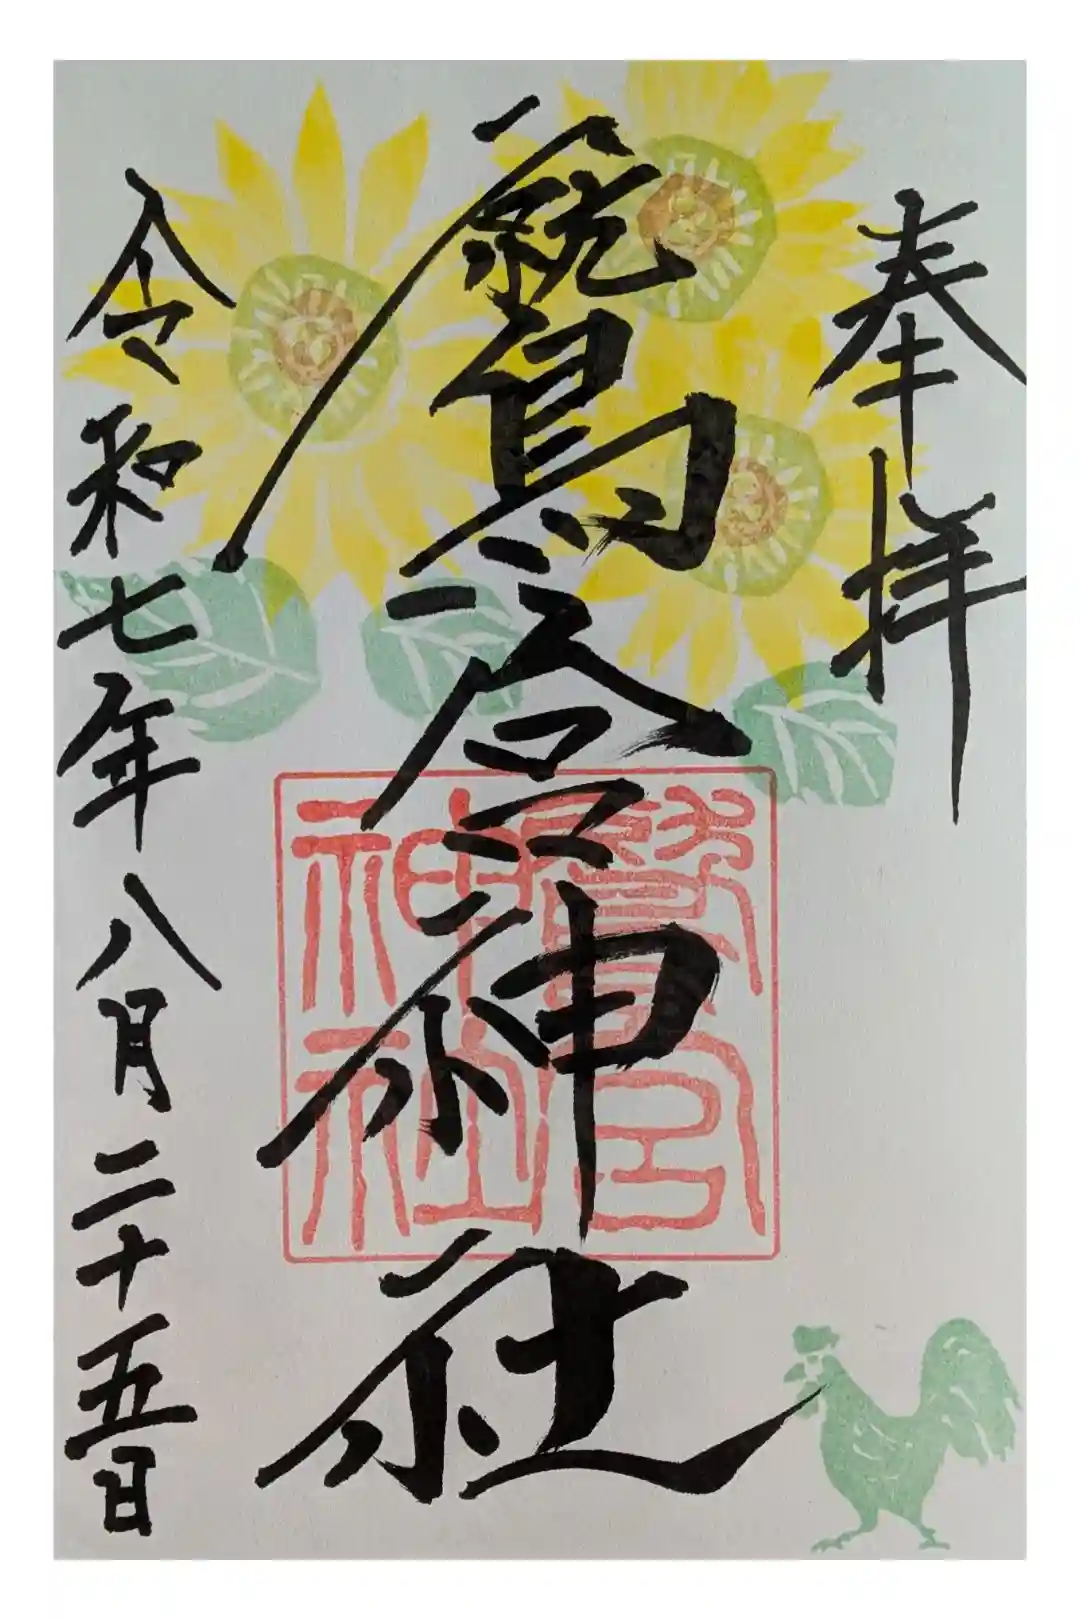 奉拝
鷲宮神社
令和七年八月二十五日
鷲宮
神社